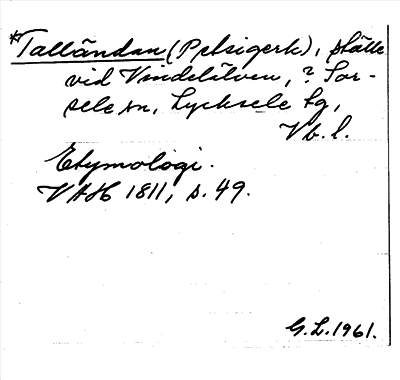 *Talländan (Petsigerk), ställe
vid Vindelälven, ? Sor-
sele sn, Lycksele tg,
Vb. l.
Etymologi.
VAH 1811, s. 49.
G.L. 1961.